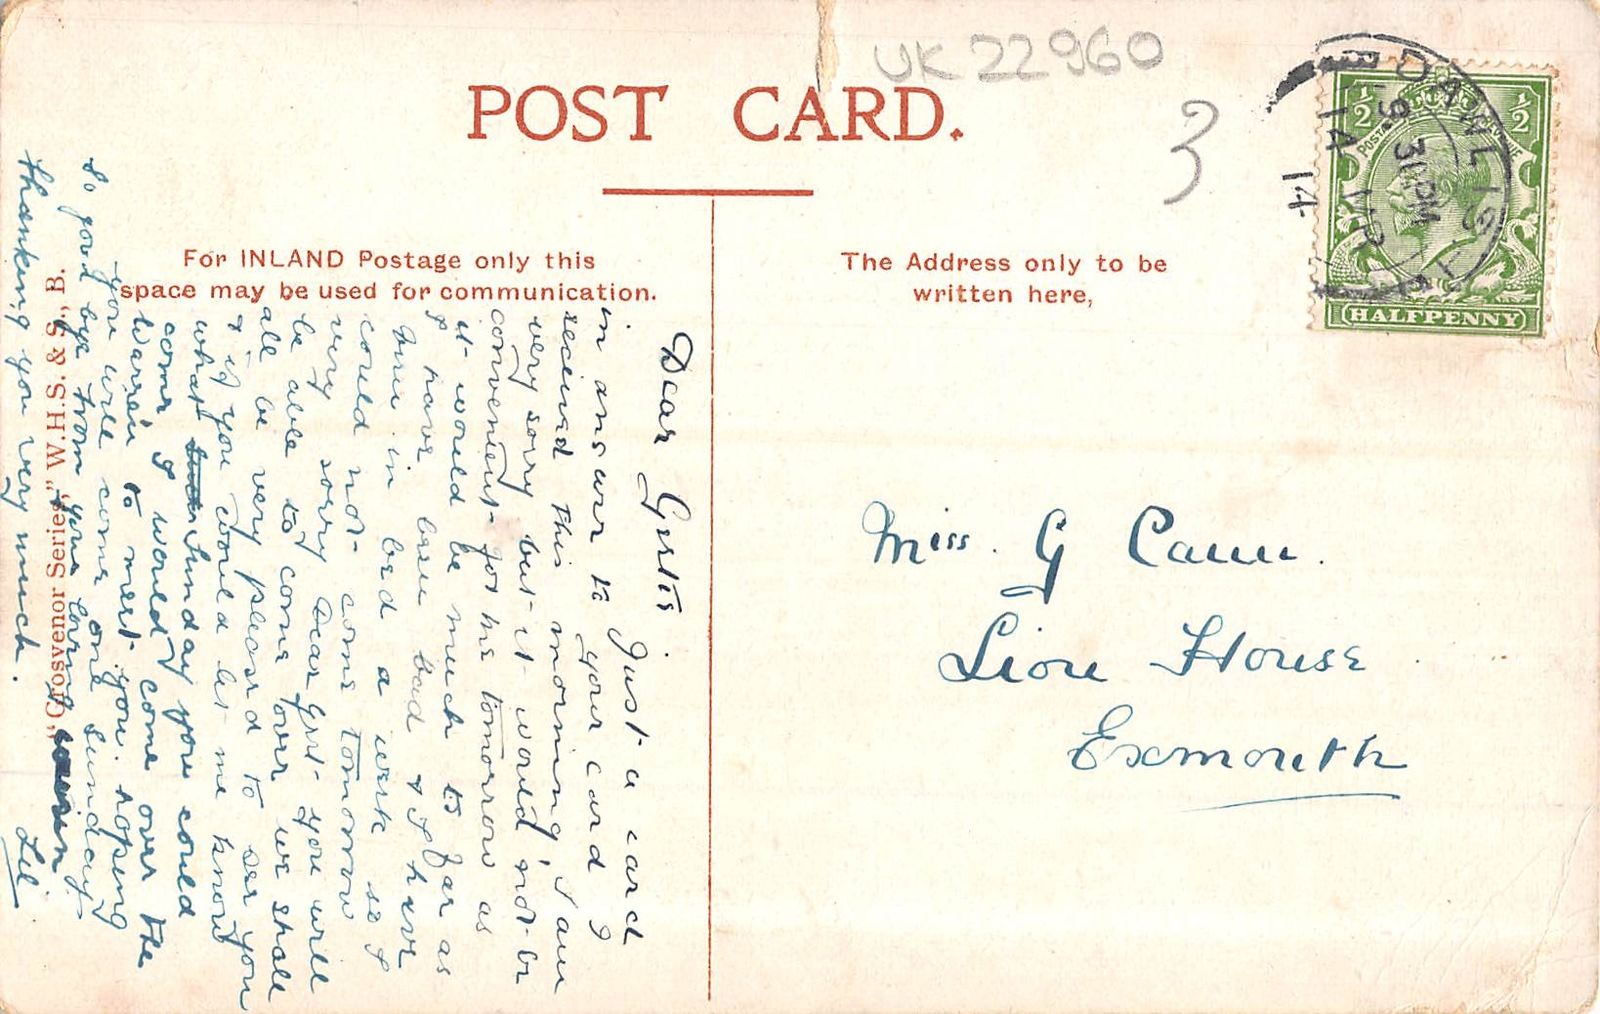 UK 22960
POST CARD.
3
DAWLISH
9 31PM
14 MR
14
1/2 1/2
POSTAGE REVENUE
HALFPENNY
For INLAND Postage only this
space may be used for communication.
The Address only to be
written here,
Dear Gertie. Just a card
in answer to your card I
received this morning, I am
very sorry but it would not be
convenient for me tomorrow as
it would be much to far as
I have been bad & I have
been in bed a week so I
could not come tomorrow
very sorry dear Gert you will
be able to come over we shall
all be very pleased to see you
& if you would let me know
what Sunday you could
come I would come over the
Warren to meet you. hoping
you will come one Sunday
So good bye from your loving
thanking you very much. Lil
"Grosvenor Series," W.H.S. & S., B.
Miss. G
Lion House
Exmouth